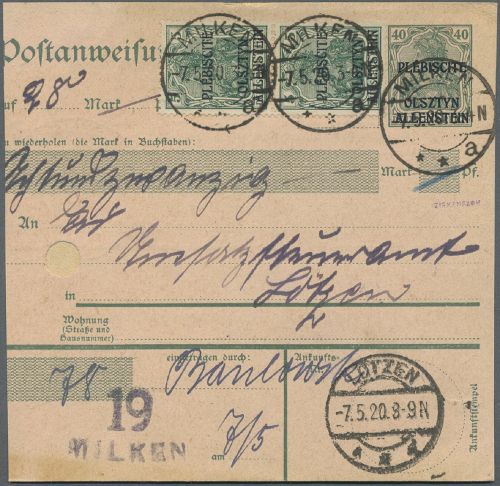 Postanweisu
MILKEN
-7.5.20.3-
a
PLÉBISCITE
OLSZTYN
ALLENSTEIN
MILKEN
-7.5.20.3-
a
PLÉBISCITE
OLSZTYN
ALLENSTEIN
40 40
PLÉBISCITE
OLSZTYN
ALLENSTEIN
MILKEN
a
uf 28 Mark
wiederholen (die Mark in Buchstaben):
Achtundzwanzig Mark Pf.
An das
Umsatzsteueramt
in Lötzen
Wohnung
(Straße und
Hausnummer)
eingetragen durch: Ankunfts-
78
19
MILKEN
am 7/5
LÖTZEN
-7.5.20.8-9N
* * d
Ankunftstempel